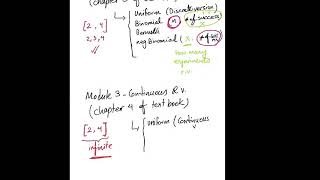 (chapter
Uniform (Discrete version)
[2, 4] Binomial n # of success
2, 3, 4 Bernoulli
neg Binomial (x,
how many
experiments
r.v.
Module 3 - Continuous R.v.
(chapter 4 of text book)
[2, 4] uniform (Continuous
infinite